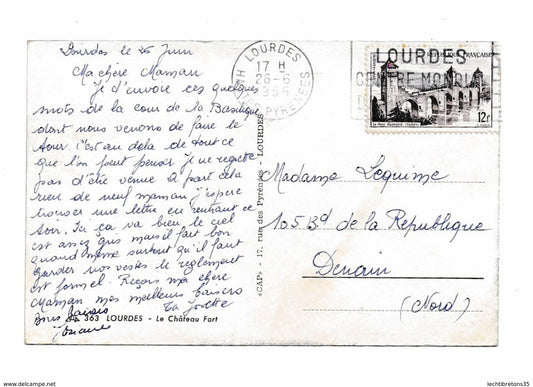 Lourdes le 26 Juin
Ma chère Maman
Je t'envoie ces quelques
mots de la cour de la Basilique
dont nous venons de faire le
tour. C'est au delà de tout ce
que l'on peut penser je ne regrette
pas d'être venue à part cela
rien de neuf maman j'espère
trouver une lettre en rentrant ce
soir. Ici ça va bien le ciel
est assez gris mais il fait bon
quand même surtout qu'il faut
garder nos vestes le règlement
est formel. Reçois ma chère
Maman mes meilleurs baisers
ta Josette
Bons baisers
Josiane
363 LOURDES - Le Château Fort
«CAP» - 17, rue des Pyrénées - LOURDES
LOURDES
17 H
26-6
PYRÉNÉES
LOURDES
CENTRE MONDIAL
12f
Madame Lequime
105 Bd de la République
Denain
(Nord)
https://www.delcampe.net
lechtibretons35